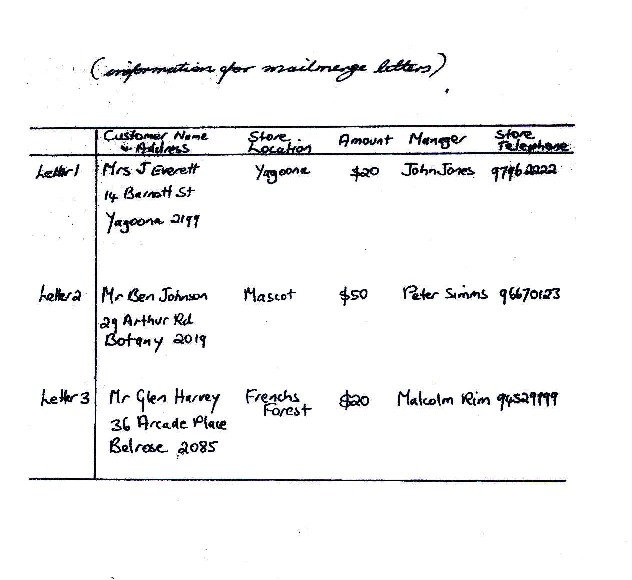 (information for mailmerge letters)
Customer Name & Address Store Location Amount Manager Store Telephone
Letter 1 Mrs J Everett Yagoona $20 John Jones 97962222
14 Barnott St
Yagoona 2199
Letter 2 Mr Ben Johnson Mascot $50 Peter Simms 96670123
29 Arthur Rd
Botany 2019
Letter 3 Mr Glen Harvey Frenchs Forest $20 Malcolm Rim 94529999
36 Arcade Place
Belrose 2085